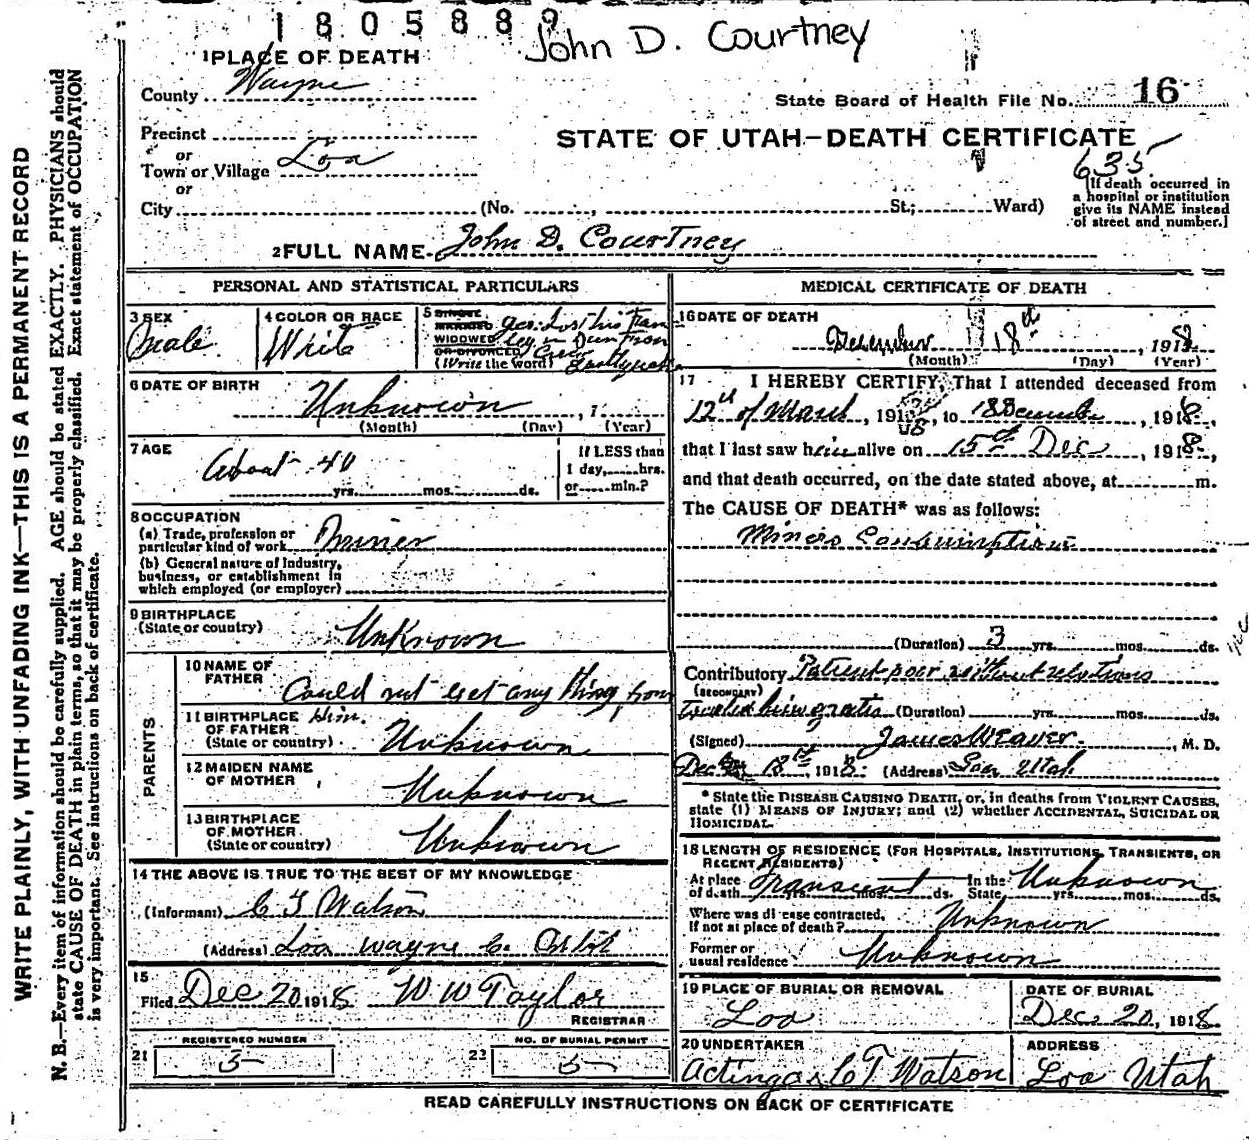 1805889
John D. Courtney
1 PLACE OF DEATH
County Wayne
State Board of Health File No. 16
Precinct
or
Town or Village Loa
or
City (No. , St.; Ward)
STATE OF UTAH—DEATH CERTIFICATE
635
[If death occurred in
a hospital or institution
give its NAME instead
of street and number.]
2 FULL NAME John D. Courtney
PERSONAL AND STATISTICAL PARTICULARS
3 SEX
Male
4 COLOR OR RACE
White
5 SINGLE
MARRIED
WIDOWED
OR DIVORCED
(Write the word)
yes. Lost his fam
ily in San Fran
Earthquake
6 DATE OF BIRTH
Unknown , 1
(Month) (Day) (Year)
7 AGE
About 40
yrs. mos. ds.
If LESS than
1 day, hrs.
or min.?
8 OCCUPATION
(a) Trade, profession or
particular kind of work Miner
(b) General nature of Industry,
business, or establishment in
which employed (or employer)
9 BIRTHPLACE
(State or country) Unknown
PARENTS
10 NAME OF
FATHER Could not get any thing from
him.
11 BIRTHPLACE
OF FATHER
(State or country) Unknown
12 MAIDEN NAME
OF MOTHER Unknown
13 BIRTHPLACE
OF MOTHER
(State or country) Unknown
14 THE ABOVE IS TRUE TO THE BEST OF MY KNOWLEDGE
(Informant) C T Watson
(Address) Loa Wayne Co. Utah
15
Filed Dec 20 1918 W W Taylor
REGISTRAR
21 REGISTERED NUMBER 3
22 NO. OF BURIAL PERMIT 5
MEDICAL CERTIFICATE OF DEATH
16 DATE OF DEATH
December 18th , 1918
(Month) (Day) (Year)
17 I HEREBY CERTIFY, That I attended deceased from
12th of March , 1918, to 18 December , 1918,
that I last saw him alive on 15th Dec , 1918,
and that death occurred, on the date stated above, at m.
The CAUSE OF DEATH* was as follows:
Miners Consumption
(Duration) 3 yrs. mos. ds.
Contributory Patient poor without relations
(SECONDARY)
treated him gratis (Duration) yrs. mos. ds.
(Signed) James Weaver , M. D.
Dec 18th, 1918 (Address) Loa Utah
* State the DISEASE CAUSING DEATH, or, in deaths from VIOLENT CAUSES,
state (1) MEANS OF INJURY; and (2) whether ACCIDENTAL, SUICIDAL OR
HOMICIDAL.
18 LENGTH OF RESIDENCE (FOR HOSPITALS, INSTITUTIONS, TRANSIENTS, OR
RECENT RESIDENTS)
At place
of death Transient yrs. mos. ds. In the
State Unknown yrs. mos. ds.
Where was disease contracted,
If not at place of death? Unknown
Former or
usual residence Unknown
19 PLACE OF BURIAL OR REMOVAL
Loa
DATE OF BURIAL
Dec. 20, 1918
20 UNDERTAKER
Acting as C T Watson
ADDRESS
Loa Utah
READ CAREFULLY INSTRUCTIONS ON BACK OF CERTIFICATE
WRITE PLAINLY, WITH UNFADING INK—THIS IS A PERMANENT RECORD
N. B.—Every item of information should be carefully supplied. AGE should be stated EXACTLY. PHYSICIANS should
state CAUSE OF DEATH in plain terms, so that it may be properly classified. Exact statement of OCCUPATION
is very important. See instructions on back of certificate.